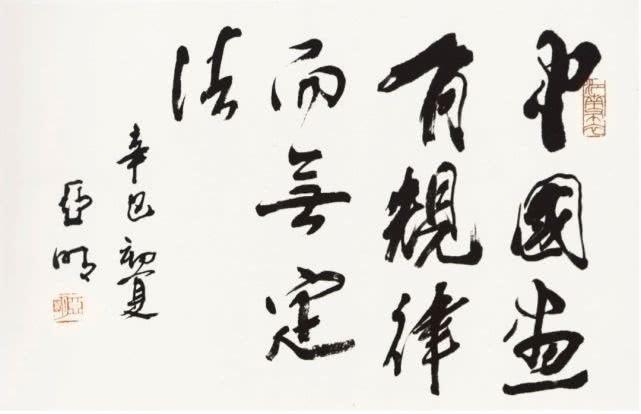 中國画
有規律
而無定
法
辛巳初夏
亞明